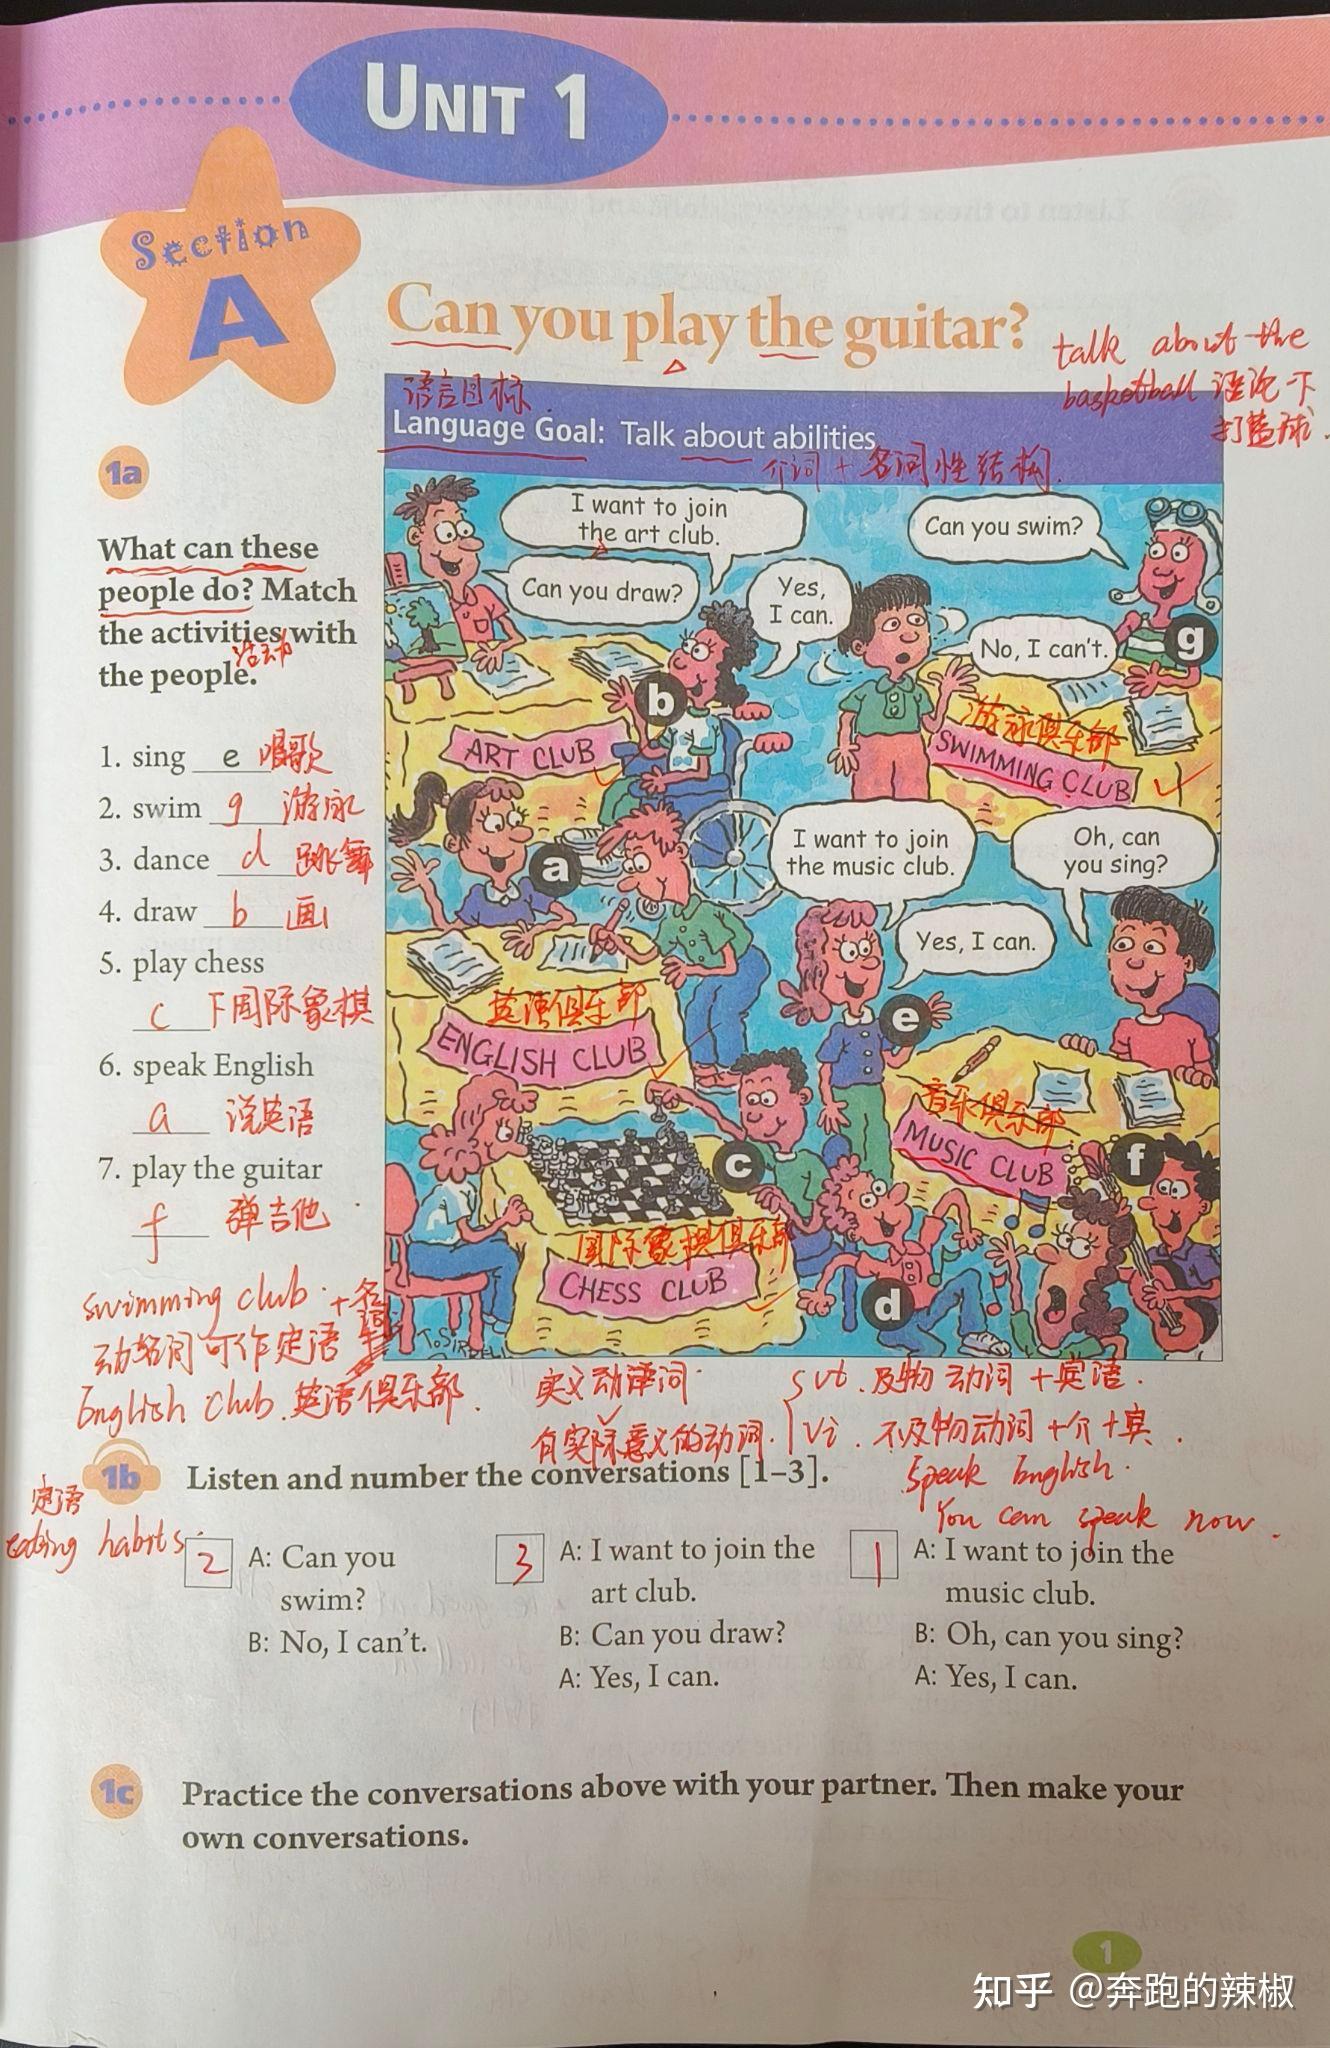 UNIT 1
Section
A
Can you play the guitar?
talk about the
basketball 谈论一下
打篮球.
语言目标.
Language Goal: Talk about abilities
介词 + 名词性结构.
1a
What can these
people do? Match
the activities with
活动
the people.
1. sing e 唱歌
2. swim g 游泳
3. dance d 跳舞
4. draw b 画
5. play chess
c 下国际象棋
6. speak English
a 说英语
7. play the guitar
f 弹吉他
I want to join
the art club.
Can you draw?
Yes,
I can.
Can you swim?
No, I can't.
b
g
ART CLUB
游泳俱乐部
SWIMMING CLUB
I want to join
the music club.
Oh, can
you sing?
Yes, I can.
a
e
英语俱乐部
ENGLISH CLUB
音乐俱乐部
MUSIC CLUB
c
f
国际象棋俱乐部
CHESS CLUB
d
swimming club. +名
动名词可作定语
English club. 英语俱乐部.
实义动词
有实际意义的动词.
vt. 及物动词 + 宾语.
vi. 不及物动词 + 介 + 宾.
speak English.
You can speak now.
1b Listen and number the conversations [1–3].
定语
eating habits.
2 A: Can you
swim?
B: No, I can't.
3 A: I want to join the
art club.
B: Can you draw?
A: Yes, I can.
1 A: I want to join the
music club.
B: Oh, can you sing?
A: Yes, I can.
1c Practice the conversations above with your partner. Then make your
own conversations.
1
知乎 @奔跑的辣椒